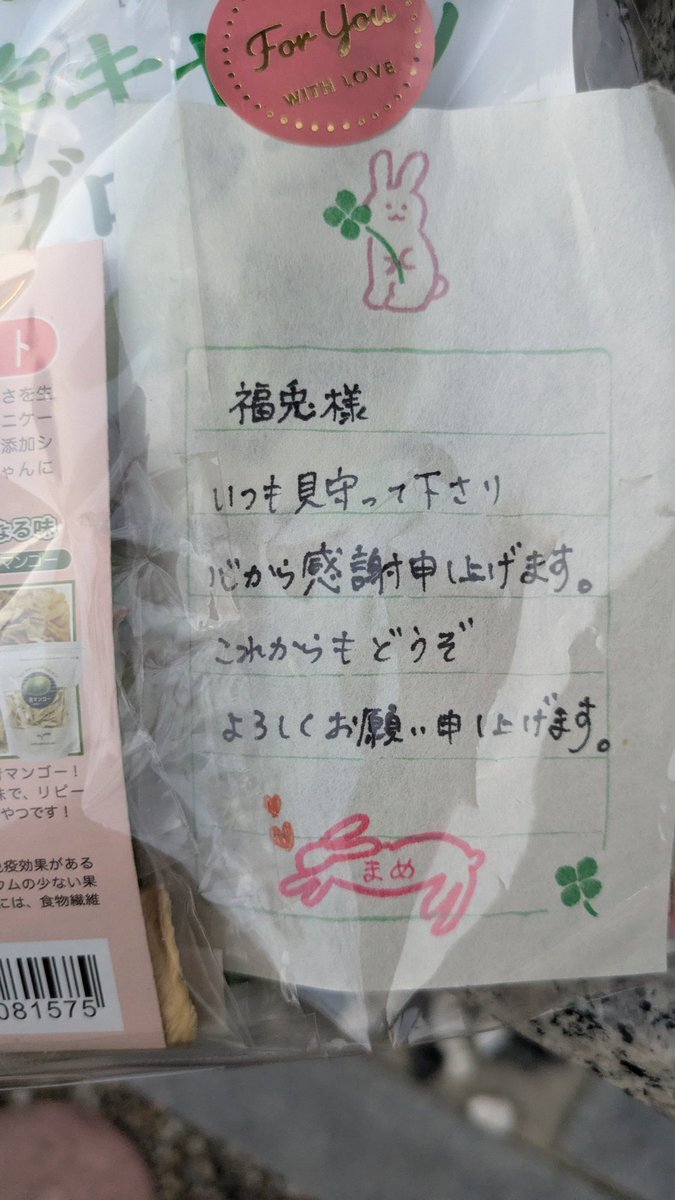 For You
WITH LOVE
キャ
ブロ
ト
さを生
ニケー
添加シ
ゃんに
なる味
マンゴー
福兎様
いつも見守って下さり
心から感謝申し上げます。
これからもどうぞ
よろしくお願い申し上げます。
まめ
マンゴー！
味で、リピー
やつです！
免疫効果がある
ウムの少ない果
には、食物繊維
081575